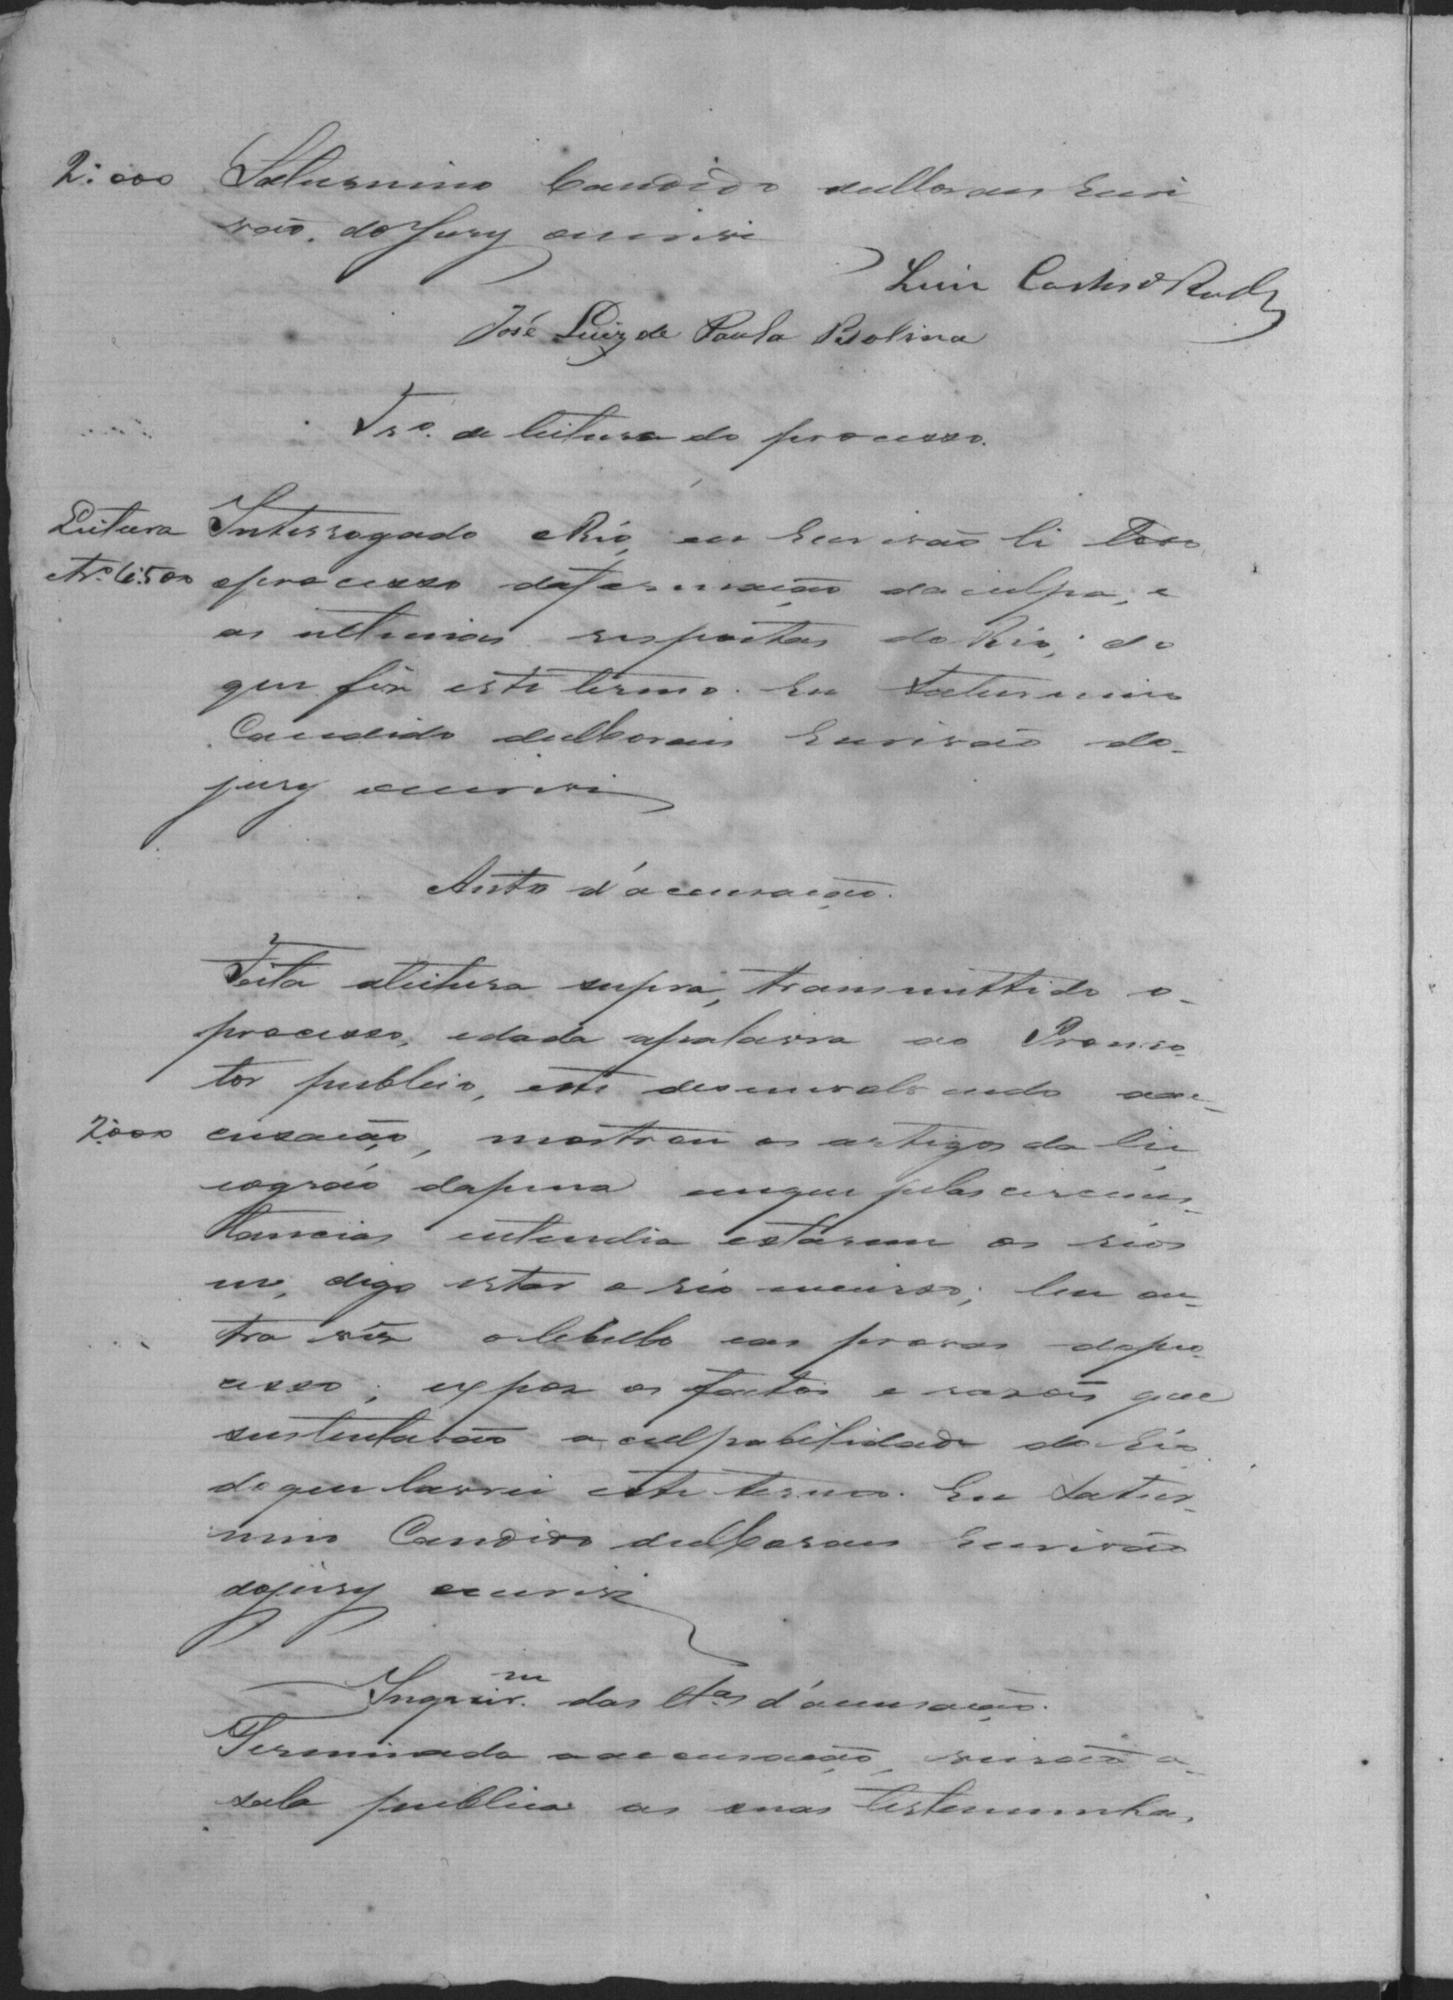 2:000 Saturnino Candido de Moraes Escri
vão do Jury escrivi
José Luiz de Paula Bolina
Tr.º de leitura do processo.
Leitura Interrogado o Réo, eu Escrivão li todo
6:500 o processo da formação da culpa, e
as ultimas respostas do Réo; do
que fiz este termo. Eu Saturnino
Candido de Moraes Escrivão do
jury escrivi
Auto d'accusação.
Feita a leitura supra, transmittido o
processo, e dada a palavra ao Promo
tor publico, este desenvolvendo a ac-
2:000 cusação, mostrou os artigos da lei
e o gráo da pena em que pelas circums-
tancias entendia estarem os réos
in, digo estar o réo incurso; leu ou-
tra vez o libello e as provas do pro-
cesso; expoz os factos e rasões que
sustentavão a culpabilidade do réo
do que lavrei este termo. Eu Satur-
nino Candido de Moraes Escrivão
do jury escrivi
Inquir.m das tt.as d'accusação.
Terminada a accusação, vierão a
sala publica as suas testemunhas,